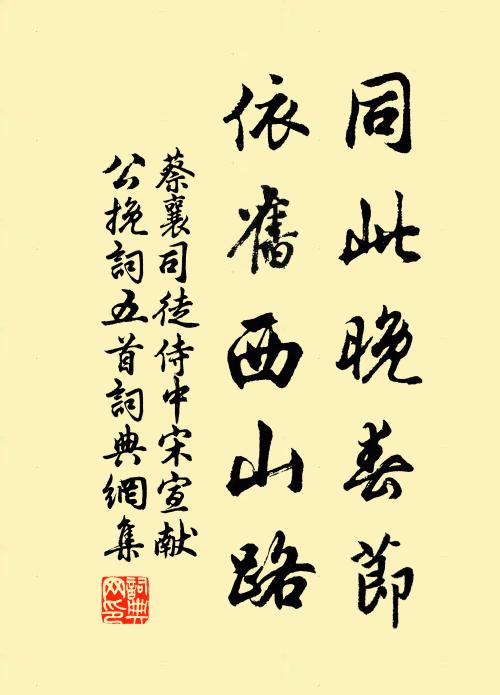 同此晚春節
依舊西山路
蔡襄司徒侍中宋宣献
公挽詞五首詞典網集
詞典网印